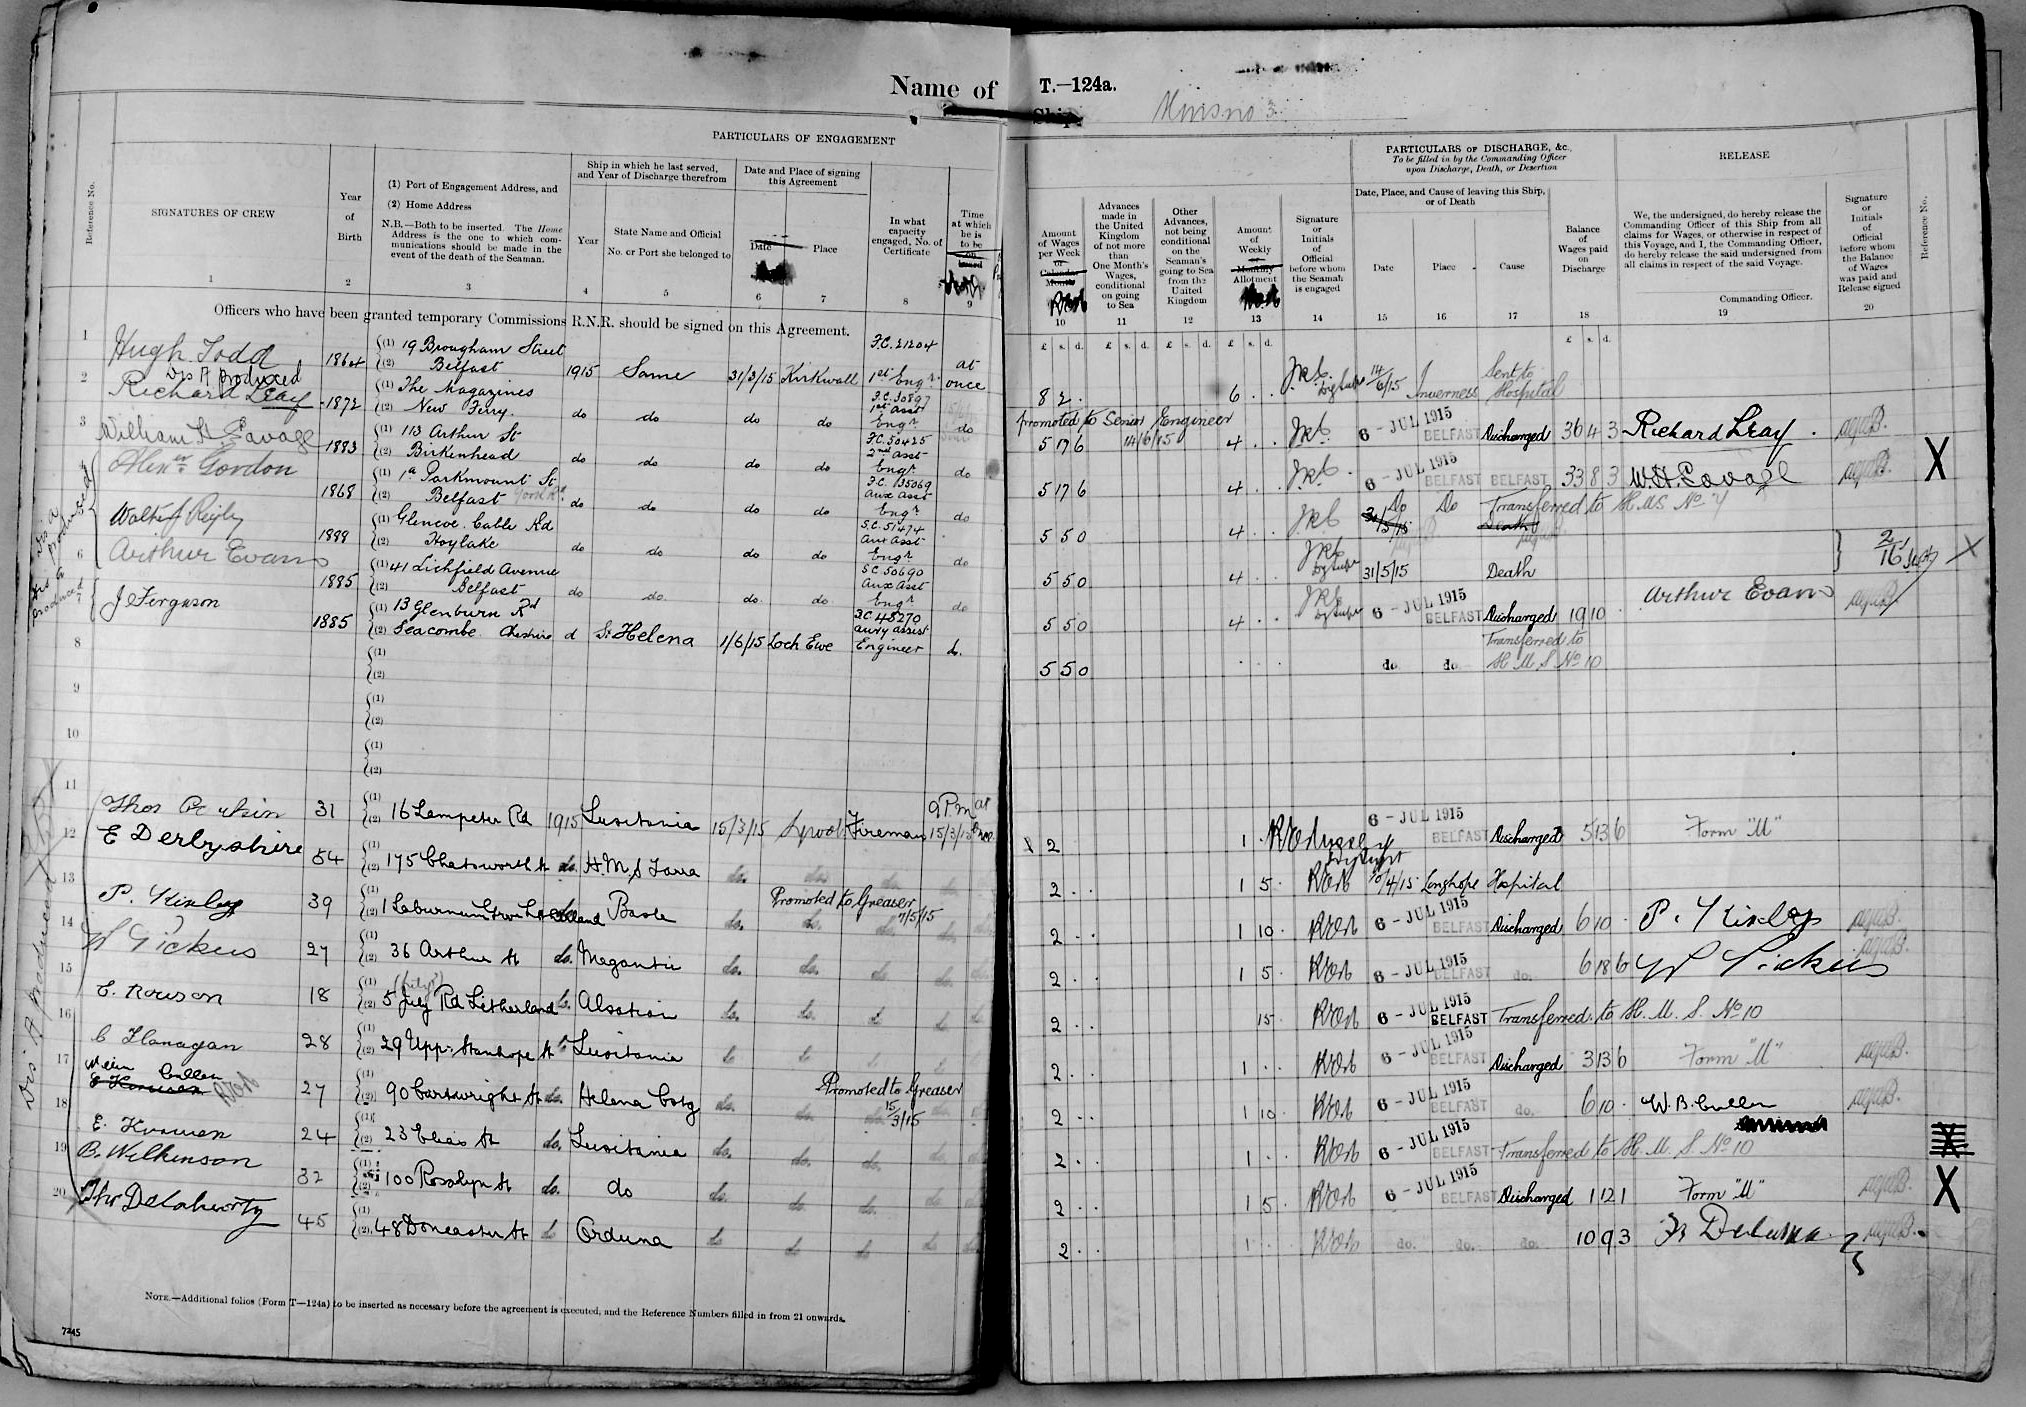 Name of
T.—124a.
Ship,
PARTICULARS OF ENGAGEMENT
PARTICULARS OF DISCHARGE, &c.,
To be filled in by the Commanding Officer
upon Discharge, Death, or Desertion
RELEASE
Reference No.
SIGNATURES OF CREW
Year
of
Birth
(1) Port of Engagement Address, and
(2) Home Address
N.B.—Both to be inserted. The Home
Address is the one to which com-
munications should be made in the
event of the death of the Seaman.
Ship in which he last served,
and Year of Discharge therefrom
Year
State Name and Official
No. or Port she belonged to
Date and Place of signing
this Agreement
Date
Place
In what
capacity
engaged, No. of
Certificate
Time
at which
he is
to be
Amount
of Wages
per Week
or
Calendar
Month
Advances
made in
the United
Kingdom
of not more
than
One Month's
Wages,
conditional
on going
to Sea
Other
Advances,
not being
conditional
on the
Seaman's
going to Sea
from the
United
Kingdom
Amount
of
Weekly
or
Monthly
Allotment
Signature
or
Initials
of
Official
before whom
the Seaman
is engaged
Date, Place, and Cause of leaving this Ship,
or of Death
Date
Place
Cause
Balance
of
Wages paid
on
Discharge
We, the undersigned, do hereby release the
Commanding Officer of this Ship from all
claims for Wages, or otherwise in respect of
this Voyage, and I, the Commanding Officer,
do hereby release the said undersigned from
all claims in respect of the said Voyage.
Commanding Officer.
Signature
or
Initials
of
Official
before whom
the Balance
of Wages
was paid and
Release signed
Reference No.
1 2 3 4 5 6 7 8 9 10 11 12 13 14 15 16 17 18 19 20
Officers who have been granted temporary Commissions R.N.R. should be signed on this Agreement.
1 Hugh Todd 1864 (1) 19 Brougham Street
(2) Belfast 1915 Same 31/3/15 Kirkwall 1st Engr. at once 8 2 6 14/6/15 Inverness Sent to Hospital
Dis A produced
2 Richard Leay 1872 (1) The Magazines
(2) New Ferry. do do do do 1st Asst Engr do
promoted to Senior Engineer 14/6/15
5 17 6 4 6 - JUL 1915 BELFAST Discharged 36 4 3 Richard Leay
3 William H Savage 1883 (1) 113 Arthur St
(2) Birkenhead do do do do 2nd Asst Engr do 5 17 6 4 6 - JUL 1915 BELFAST BELFAST 33 8 3 X
Alexr Gordon 1868 (1) 1a Parkmount St
(2) Belfast do do do do Aux Asst Engr do 5 5 0 4 Do Do Transferred to H.M.S. No 7
(1) Glencoe. Cable Rd
1889 (2) Hoylake do do do do Aux Asst Engr do 5 5 0 4 31/5/15 Death
6 Arthur Evans 1885 (1) 41 Lichfield Avenue
(2) Belfast do do do do Aux Asst Engr do 5 5 0 4 6 - JUL 1915 BELFAST Discharged 19 10 Arthur Evans
7 J Ferguson 1885 (1) 13 Glenburn Rd
(2) Seacombe. Cheshire d St Helena 1/6/15 Loch Ewe Engineer do. 5 5 0 do do Transferred to
H M S No 10
8 (1)
(2)
9 (1)
(2)
10 (1)
(2)
11 31 (1)
(2) 16 Lampeter Rd 1915 Lusitania 15/3/15 Lpool Fireman 9 P.m 15/3/15 2 1 6 - JUL 1915 BELFAST Discharged 5 13 6 Form "M"
12 E Derbyshire 54 (1)
(2) 175 Chatsworth St do. H.M.S do. 2 1 5 10/4/15 Longhope Hospital
13 39 (1) Promoted to Greaser
do. 7/5/15 2 1 10 6 - JUL 1915 BELFAST Discharged 6 10
14 27 (1)
(2) 36 Arthur St do. Megantic do. do. do. 2 1 5 6 - JUL 1915 BELFAST do. 6 18 6
15 E. Rowson 18 (1)
(2) 5 July Rd Litherland do. Alsatian do. do. 2 15 6 - JUL 1915 BELFAST Transferred to H. M. S. No 10
16 C Flanagan 28 (1)
(2) 29 Upp. Stanhope St Lusitania 2 1 6 - JUL 1915 BELFAST Discharged 3 13 6 Form "M"
17 27 (1) Promoted to Greaser
(2) 90 Cartwright St do. do. 15/3/15 2 1 10 6 - JUL 1915 BELFAST do. 6 10 W. B. Cullen
18 24 (1)
(2) 23 Elias St do. Lusitania do. do. do. 2 1 6 - JUL 1915 BELFAST Transferred to H. M. S No 10
19 B. Wilkinson 32 (1)
(2) 100 Rosalyn St do. do do. do. do. 2 1 5 6 - JUL 1915 BELFAST Discharged 1 12 1 Form "M" X
20 45 (1)
(2) 48 Doncaster St Orduna 2 1 do. do. do. 10 9 3
NOTE.—Additional folios (Form T—124a) to be inserted as necessary before the agreement is executed, and the Reference Numbers filled in from 21 onwards.
7245